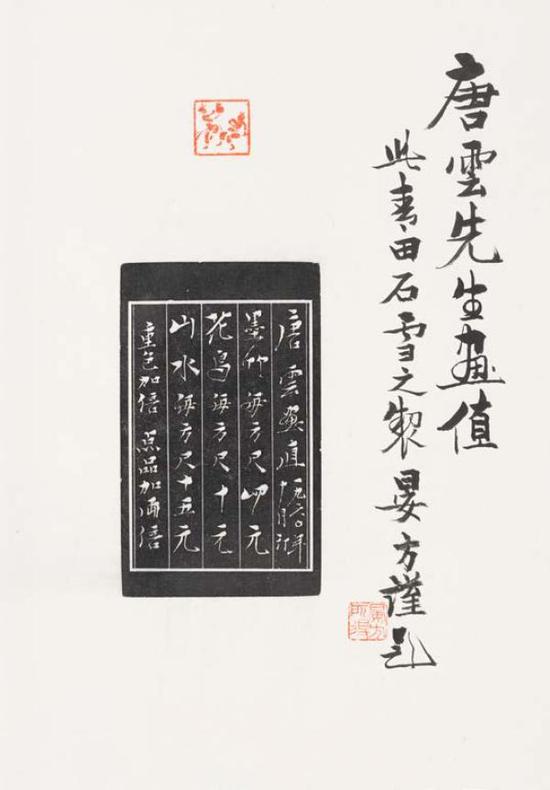 唐雲先生畫值
此青田石雪之製晏方謹題
唐雲畫直一九六〇年十月訂
墨竹每方尺四元
花鳥每方尺十元
山水每方尺十五元
重色加倍點品加兩倍